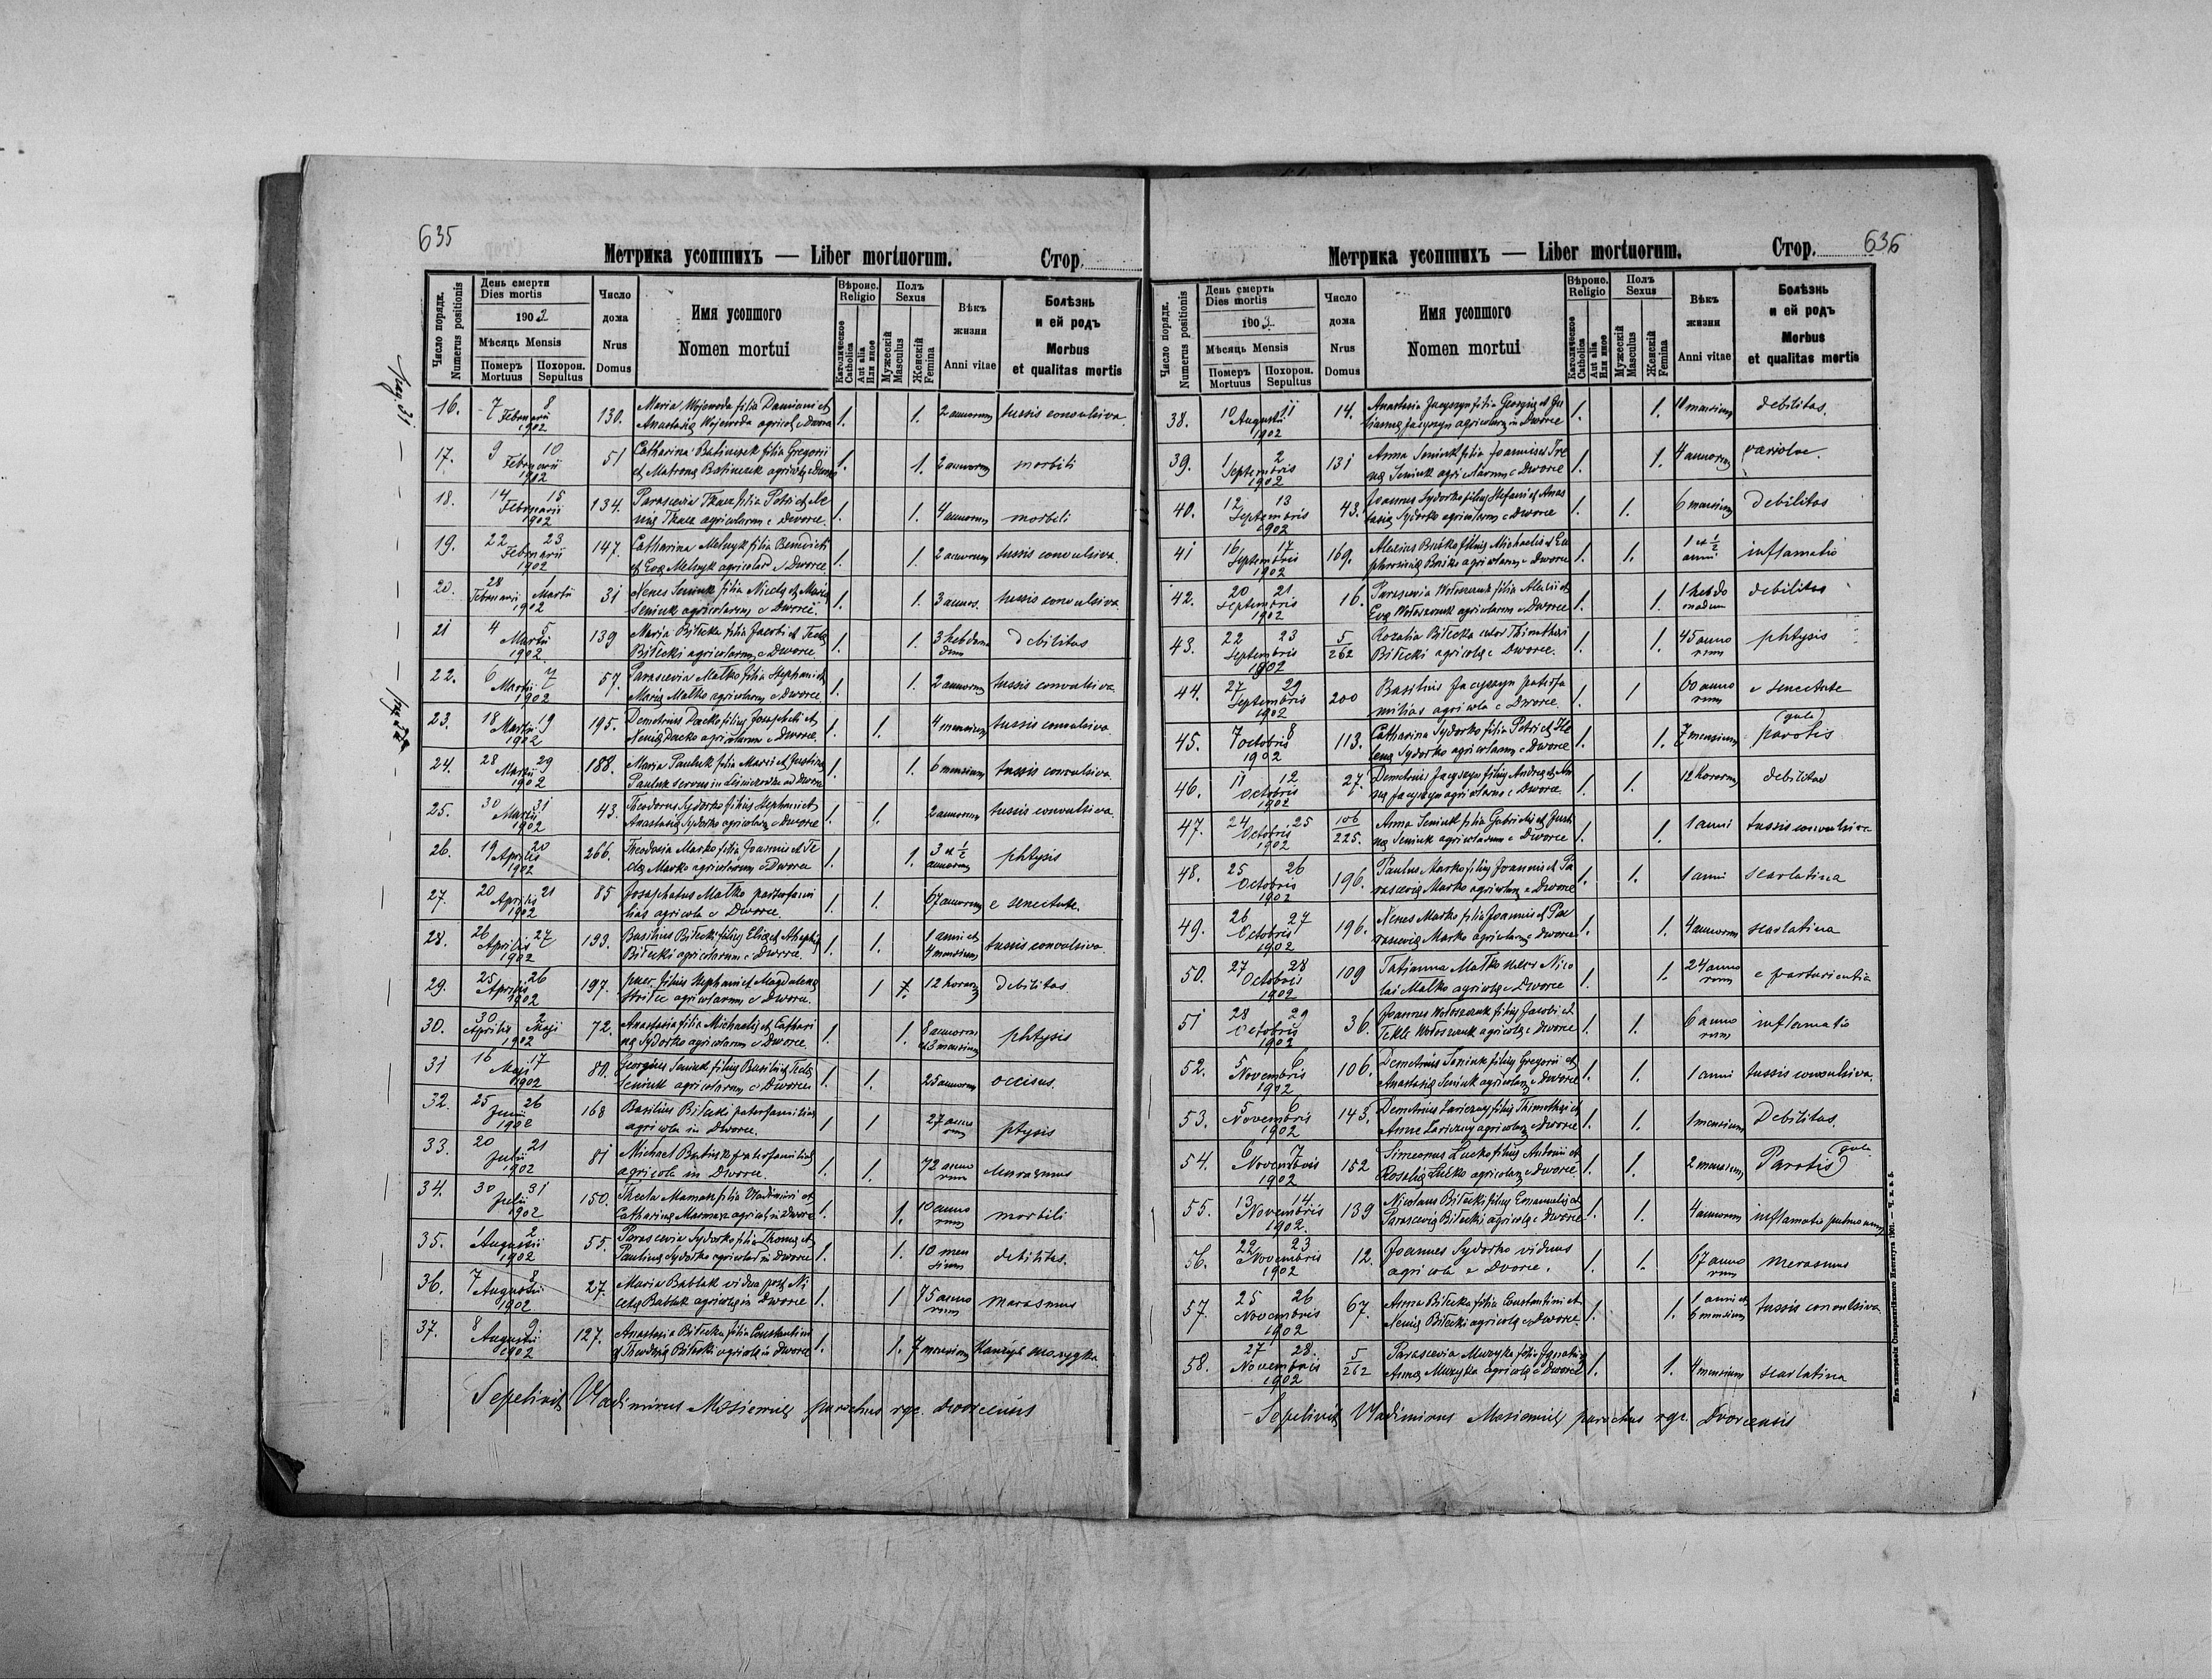 635
Метрика усопшихъ — Liber mortuorum.
Стор.
Число порядк.
Numerus positionis
День смерти
Dies mortis
1902
Мѣсяць Mensis
Померъ Mortuus
Похорон. Sepultus
Число дома
Nrus Domus
Имя усопшого
Nomen mortui
Вѣроис. Religio
Католическое Catholica
Aut alia Или иное
Полъ Sexus
Мужескій Masculus
Женскій Femina
Вѣкъ жизни
Anni vitae
Болѣзнь и ей родъ
Morbus et qualitas mortis
16. 7 8 Februarii 1902 130. Maria Wojewoda filia Damiani et Anastasię Wojewoda agricol. 1. 1. 2 annorum tussis convulsiva
17. 9 10 Februarii 1902 51 Catharina filia Gregorii et Matronę 1. 1. 2 annorum morbili
18. 14 15 Februarii 1902 134. Parascevia Tkacz filia Petri et Tkacz agricolarum e Dworce 1. 1. 4 annorum morbili
19. 22 23 Februarii 1902 147. Catharina Melnyk filia Benedicti et Evę Melnyk agricolar e Dworce. 1. 1. 2 annorum tussis convulsiva.
20. 28 Februarii 1 Martii 1902 31 Xenes Seniuk filia Nicolę et Marię Seniuk agricolarum e Dworce. 1. 1. 3 annor. tussis convulsiva
21 4 5 Martii 1902 139 Maria Biłecka filia Jacobi et Teclę Biłecki agricolarum e Dworce. 1. 1. 3 hebdoma dum debilitas
22. 6 7 Martii 1902 57. Parascevia Małko filia Stephani et Marię Małko agricolarum e Dworce. 1. 1. 2 annorum tussis convulsiva
23. 18 19 Martii 1902 195. Demetrius Dacko filius Josaphati et Xenię Dacko agricolarum e Dworce. 1. 1. 4 mensium tussis convulsiva
24. 28 29 Martii 1902 188. Maria Pauluk filia Marci et Justinę Pauluk 1. 1. 6 mensium tussis convulsiva
25. 30 31 Martii 1902 43. Theodorus Sydorko filius Stephani et Anastasię Sydorko agricolarum e Dworce 1. 1. 2 annorum tussis convulsiva.
26. 19 20 Aprilis 1902 266. Theodosia Marko filia Joannis et Te clę Marko agricolarum e Dworce 1. 1. 3 et 1/2 annorum phtysis
27. 20 21 Aprilis 1902 85 Josaphatus Małko paterfami lias agricola e Dworce. 1. 1. 67 annorum e senectute.
28. 26 27 Aprilis 1902 193. Basilius Biłecki filius Elię et Biłecki agricolarum e Dworce. 1. 1. 1 anni et 4 mensium tussis convulsiva
29. 25 26 Aprilis 1902 197. puer filius Stephani et Magdalenę agricolarum e Dworce. 1 12 horarum debilitas
30. 30 Aprilis 2 Maji 1902 72. Anastasia filia Michaelis et Cathari nę Sydorko agricolarum e Dworce. 1. 1. 8 annorum et 3 mensium phtysis
31 16 17 Maji 1902 81. Georgius Seniuk filius Basilii et Teclę Seniuk agricolarum e Dworce. 1. 1. 25 annorum occisus.
32. 25 26 Junii 1902 168 Basilius Biłecki paterfamilias agricola in Dworce. 1 1 27 anno rum ptysis
33. 20 21 Julii 1902 81 Michael paterfamilias agricola in Dworce. 1. 1. 72 anno rum marasmus
34. 30 31 Julii 1902 150. Thecla filia Vladimiri et Catharinę agricol. in Dworce 1. 1. 10 anno rum morbili
35. 1 2 Augusti 1902 55. Parascevia Sydorko filia Thomę et Paulinę Sydorko agricolar in Dworce 1. 1. 10 men sium debilitas.
36. 7 8 Augusti 1902 27. Maria Bablak vidua post Ni cetę Bablak agricolę in Dworce 1. 1 75 anno rum marasmus
37. 8 9 Augusti 1902 127. Anastasia Biłecka filia Constantini et Theodosię Biłecki agricolę in Dworce 1. 1. 7 mensium
Sepelivit Vladimirus parochus rgc. dvorcensis
636
Метрика усопшихъ — Liber mortuorum.
Стор.
Число порядк.
Numerus positionis
День смерть
Dies mortis
1903
Мѣсяць Mensis
Померъ Mortuus
Похорон. Sepultus
Число дома
Nrus Domus
Имя усопшого
Nomen mortui
Вѣроис. Religio
Католическое Catholica
Aut alia Или иное
Полъ Sexus
Мужескій Masculus
Женскій Femina
Вѣкъ жизни
Anni vitae
Болѣзнь и ей родъ
Morbus et qualitas mortis
38. 10 11 Augusti 1902 14. Anastasia Jacyszyn filia Georgii et Ju liannę Jacyszyn agricolarum in Dworce 1. 1. 10 mensium debilitas.
39. 1 2 Septembris 1902 131 Anna Seniuk filia Joannis et Ire nę Seniuk agricolarum e Dworce 1. 1. 4 annorum variolae.
40. 12 13 Septembris 1902 43. Joannes Sydorko filius Stefani et Anas tasię Sydorko agricolarum e Dworce 1. 1. 6 mensium debilitas
41 16 17 Septembris 1902 169. Alexius Buśko filius Michaelis et Eu phrosinię Buśko agricolarum e Dworce 1. 1. 1 et 1/2 anni inflamatio
42. 20 21 Septembris 1902 16. Parascevia Wołoszczuk filia Alexii et Evę Wołoszczuk agricolarum e Dworce 1. 1. 1 hebdo madum debilitas
43. 22 23 Septembris 1902 5/262 Rozalia Biłecka uxor Thimothei Biłecki agricolę e Dworce. 1. 1. 45 anno rum phtysis
44. 27 29 Septembris 1902 200 Basilius Jacyszyn paterfa milias agricola e Dworce. 1. 1 60 anno rum e senectute
45. 7 8 octobris 1902 113. Catharina Sydorko filia Petri et He lenę Sydorko agricolarum e Dworce 1. 1. 7 mensium (gula) parotis
46. 11 12 octobris 1902 27. Demetrius Jacyszyn filius Andreę et An nę Jacyszyn agricolarum e Dworce 1. 1. 12 horarum debilitas
47. 24 25 Octobris 1902 106/225. Anna Seniuk filia Gabrielis et Justi nę Seniuk agricolarum e Dworce 1. 1. 1 anni tussis convulsiva
48. 25 26 Octobris 1902 196. Paulus Marko filius Joannis et Pa rascevię Marko agricolarum e Dworce 1. 1. 1 anni scarlatina
49. 26 27 Octobris 1902 196. Xenes Marko filia Joannis et Pa rascevię Marko agricolarum e Dworce 1. 1. 4 annorum scarlatina
50. 27 28 Octobris 1902 109 Tatianna Małko uxor Nico lai Małko agricolę e Dworce 1. 1. 24 anno rum e parturientia
51 28 29 Octobris 1902 36. Joannes Wołoszczuk filius Jacobi et Teklę Wołoszczuk agricolę e Dworce 1. 1. 6 anno rum inflamatio
52. 5 6 Novembris 1902 106. Demetrius Seniuk filius Gregorii et Anastasię Seniuk agricolarum e Dworce 1. 1. 1 anni tussis convulsiva.
53. 5 6 Novembris 1902 143. Demetrius filius Thimothei et Annę agricolarum e Dworce 1. 1. 1 mensium Debilitas.
54. 6 7 Novembris 1902 152 Simeonus Lucko filius Antonii et Rosalię Lucko agricolarum e Dworce 1. 1. 2 mensium Parotis (gula)
55. 13 14 Novembris 1902. 139 Nicolaus Biłecki filius Emanuelis et Parascevię Biłecki agricolę e Dworce 1. 1. 4 annorum inflamatio pulmonum
56. 22 23 Novembris 1902 12. Joannes Sydorko viduus agricola e Dvorce. 1. 1. 67 anno rum merasmus
57. 25 26 Novembris 1902 67. Anna Biłecka filia Constantini et Xenię Biłecki agricolę e Dworce. 1. 1. 1 anni et 6 mensium tussis convulsiva
58. 27 28. Novembris 1902 5/262 Parascevia Muzyka filia Ignatii et Annę Muzyka agricolę e Dworce 1. 1. 4 mensium scarlatina
Sepelivit Vladimirus parochus rgc. Dvorcensis